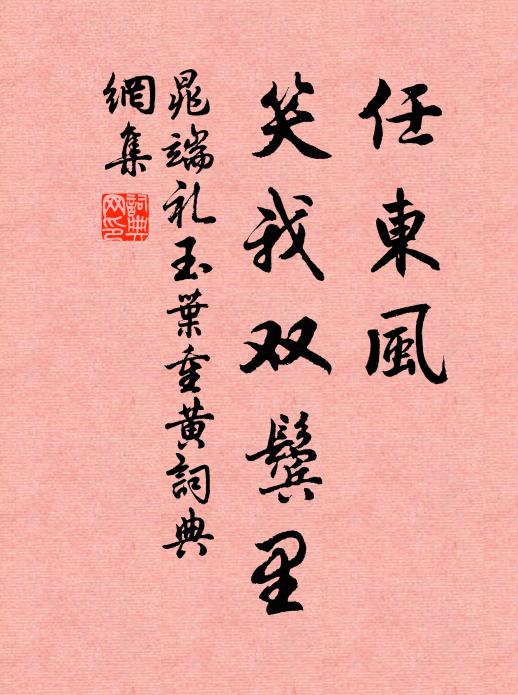 任東風
笑我双鬓里
晁端礼玉葉重黄詞典
網集
詞典
网印